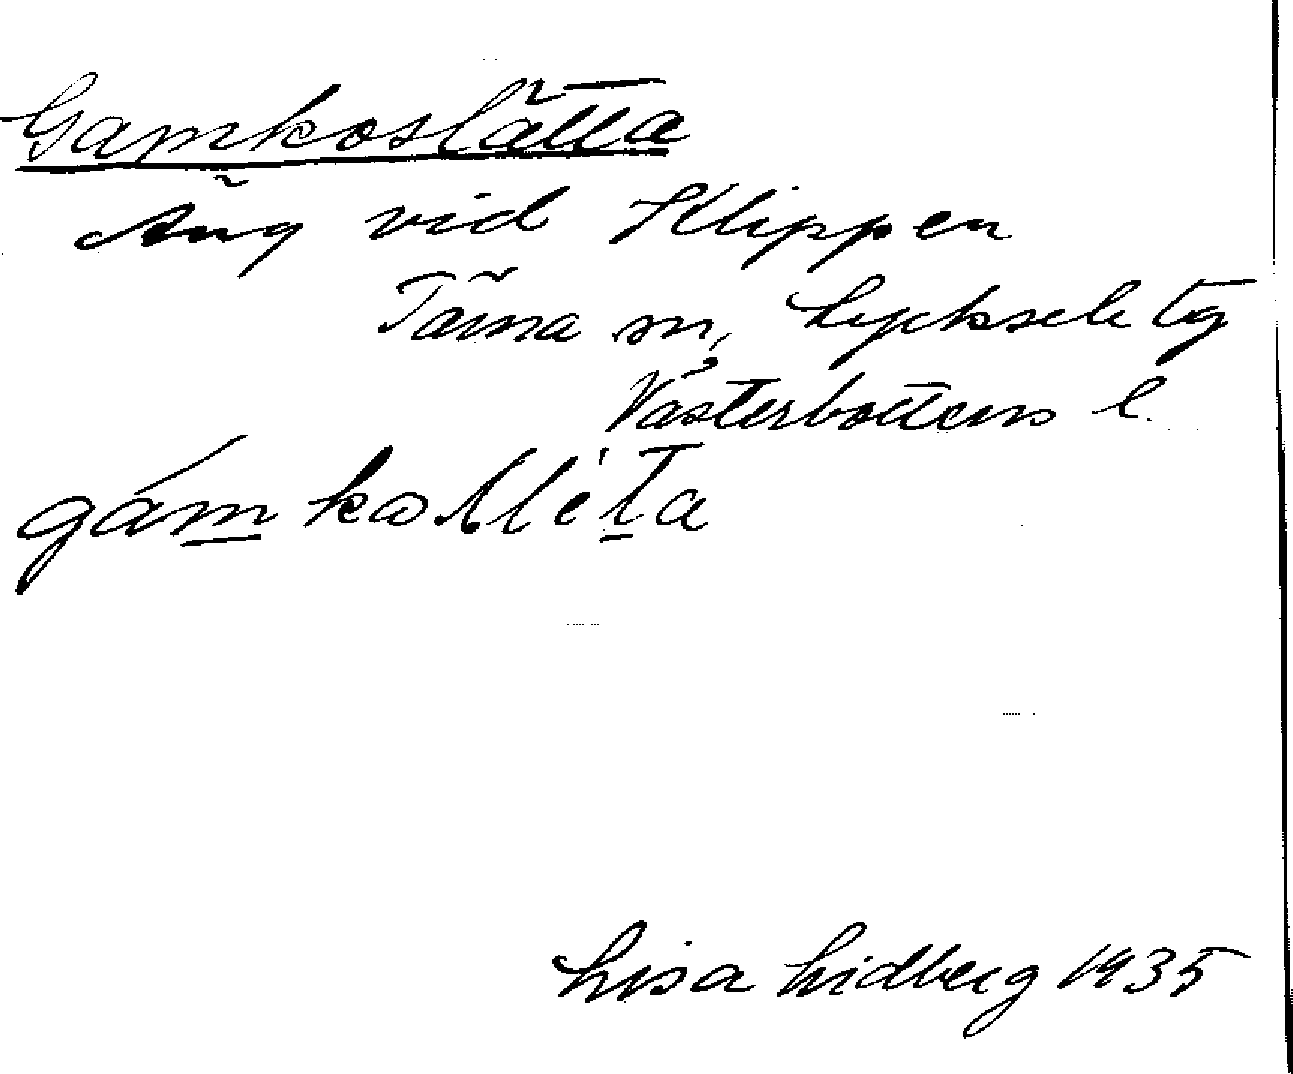 Gamkoslätta
Äng vid Klippen
Tärna sn, Lycksele tg
Västerbottens l.
Lisa Lidberg 1935